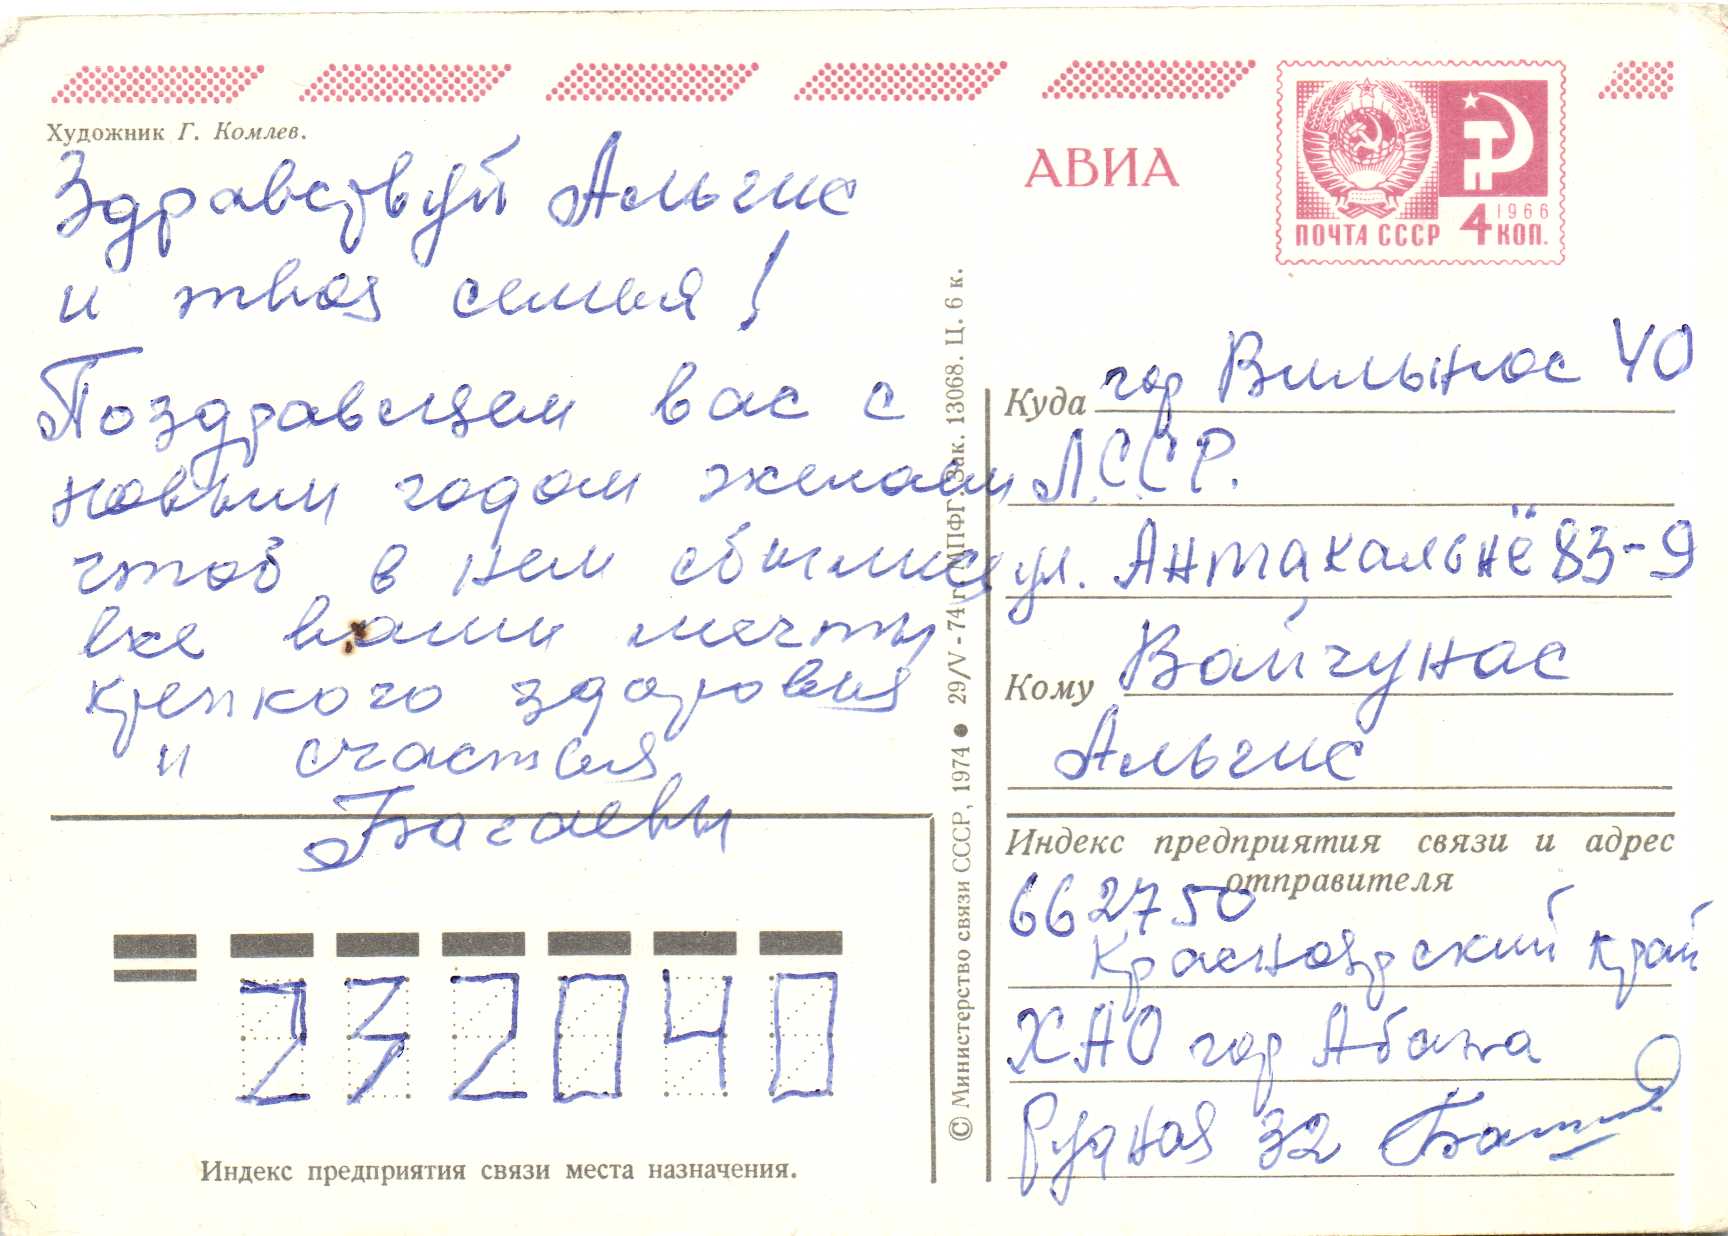 Художник Г. Комлев.
Здравствуй Альгис
и твоя семья!
Поздравляем вас с
новым годом желаем
чтоб в нем сбылись
все ваши мечты
крепкого здоровия
и счастья
Багаевы
АВИА
ПОЧТА СССР 4 КОП.
1966
Куда гор Вильнос 40
Л.ССР.
ул. Антакальнё 83-9
Кому Вайчунас
Альгис
Индекс предприятия связи и адрес
отправителя
662750
Красноярский край
ХАО гор Абаза
Рудная 32
232040
Индекс предприятия связи места назначения.
© Министерство связи СССР, 1974 ● 29/V - 74 г. МПФГ. Зак. 13068. Ц. 6 к.